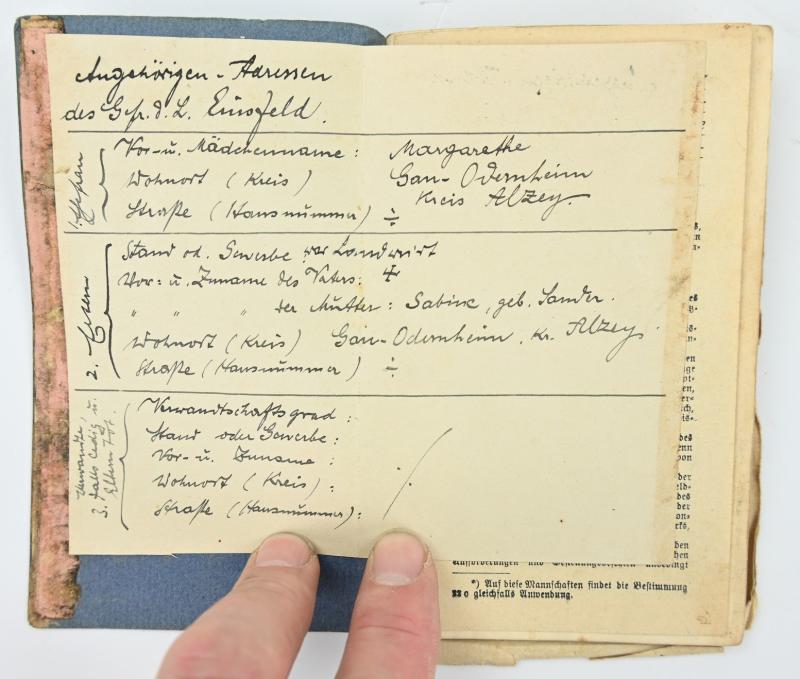 Angehörigen-Adressen
des Gefr. d. L. Einsfeld.
1. Ehefrau
Vor- u. Mädchenname: Margarethe
Wohnort (Kreis) Gau-Odernheim
Kreis Alzey.
Straße (Hausnummer) ÷
2. Eltern
Stand od. Gewerbe war Landwirt
Vor- u. Zuname des Vaters: +
" " " der Mutter: Sabine, geb. Sander.
Wohnort (Kreis) Gau-Odernheim, Kr. Alzey.
Straße (Hausnummer) ÷
3. Verwandte, falls ledig u. Eltern tot.
Verwandtschaftsgrad:
Stand oder Gewerbe:
Vor- u. Zuname:
Wohnort (Kreis):
Straße (Hausnummer):
*) Auf diese Mannschaften findet die Bestimmung
22 c gleichfalls Anwendung.